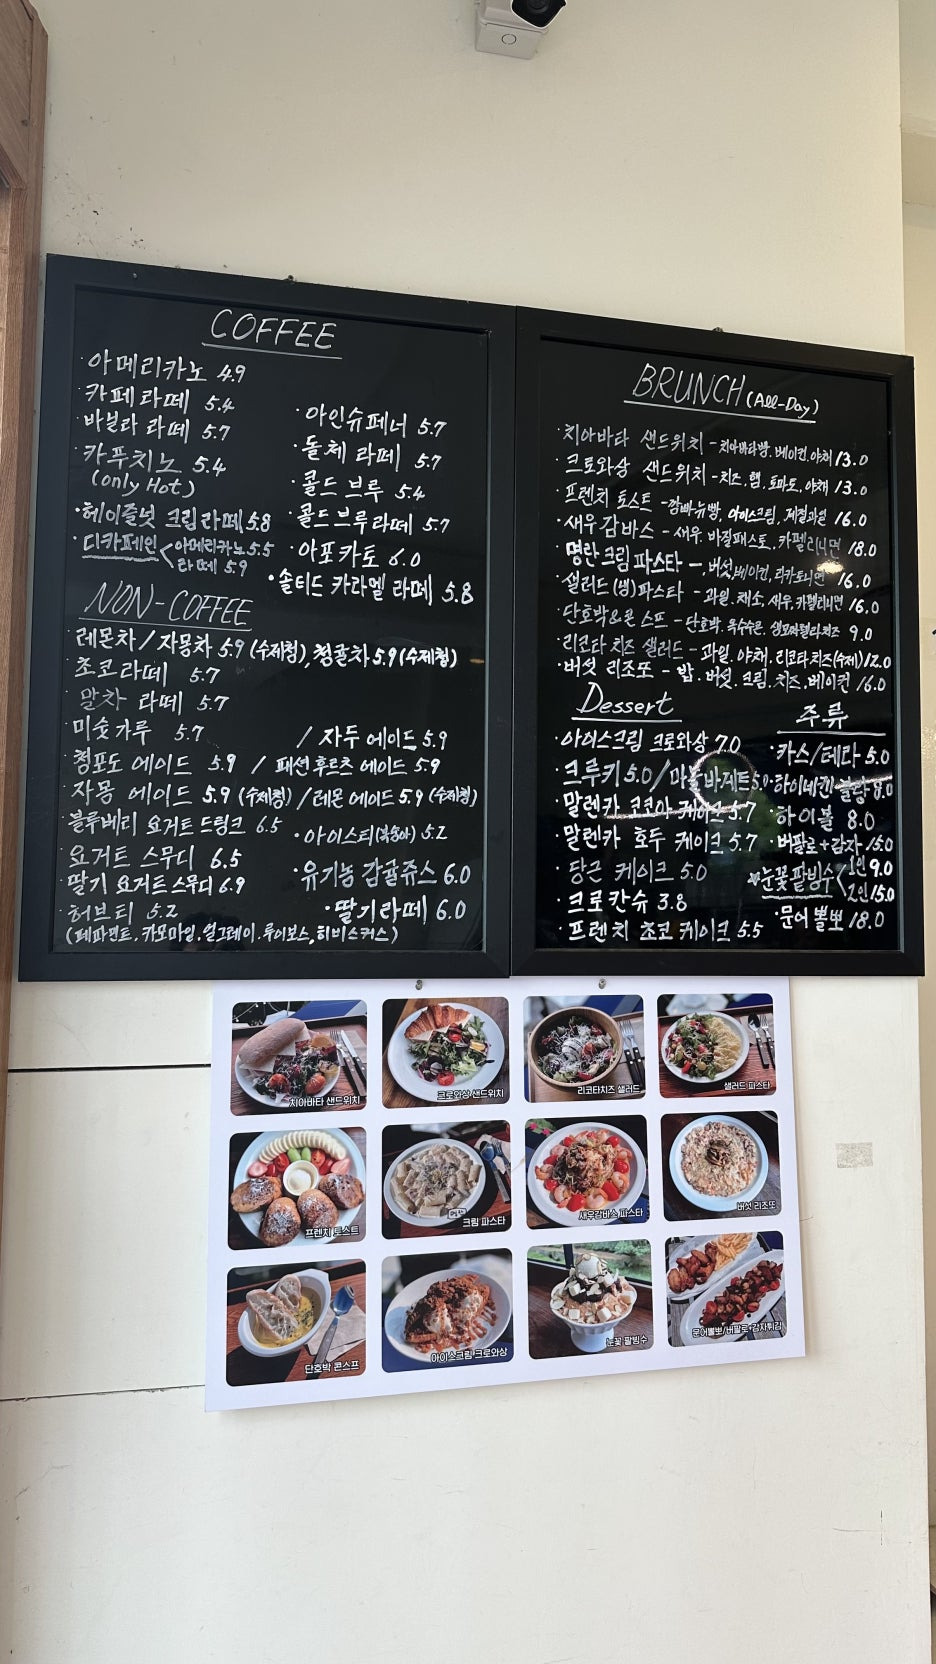 COFFEE
· 아메리카노 4.9
· 카페라떼 5.4
· 바닐라 라떼 5.7
· 카푸치노 5.4
(only Hot)
· 헤이즐넛 크림라떼 5.8
· 디카페인 < 아메리카노 5.5
라떼 5.9
· 아인슈페너 5.7
· 돌체 라떼 5.7
· 콜드 브루 5.4
· 콜드브루라떼 5.7
· 아포카토 6.0
· 솔티드 카라멜 라떼 5.8
NON-COFFEE
· 레몬차 / 자몽차 5.9 (수제청), 청귤차 5.9 (수제청)
· 초코라떼 5.7
· 말차 라떼 5.7
· 미숫가루 5.7 / 자두에이드 5.9
· 청포도 에이드 5.9 / 패션후르츠 에이드 5.9
· 자몽 에이드 5.9 (수제청) / 레몬에이드 5.9 (수제청)
· 블루베리 요거트드링크 6.5
· 아이스티(복숭아) 5.2
· 요거트 스무디 6.5
· 유기농 감귤쥬스 6.0
· 딸기 요거트스무디 6.9
· 딸기라떼 6.0
· 허브티 5.2
(페퍼민트, 카모마일, 얼그레이, 루이보스, 히비스커스)
BRUNCH (All-Day)
· 치아바타 샌드위치 - 치아바타빵, 베이컨, 야채 13.0
· 크로와상 샌드위치 - 치즈, 햄, 토마토, 야채 13.0
· 프렌치 토스트 - 깜빠뉴빵, 아이스크림, 제철과일 16.0
· 새우 감바스 - 새우, 바질페스토, 카펠리니면 18.0
· 명란크림파스타 -, 버섯, 베이컨, 리가토니면 16.0
· 샐러드(냉)파스타 - 과일, 채소, 새우, 카펠리니면 16.0
· 단호박&콘 스프 - 단호박, 옥수수콘, 생모짜렐라치즈 9.0
· 리코타 치즈 샐러드 - 과일, 야채, 리코타치즈(수제) 12.0
· 버섯 리조또 - 밥, 버섯, 크림, 치즈, 베이컨 16.0
Dessert
· 아이스크림 크로와상 7.0
· 크루키 5.0 / 마늘바게트 5.0
· 말렌카 코코아 케이크 5.7
· 말렌카 호두 케이크 5.7
· 당근 케이크 5.0
· 크로칸슈 3.8
· 프렌치 초코케이크 5.5
주류
· 카스/테라 5.0
· 하이네켄/블랑 8.0
· 하이볼 8.0
· 버팔로+감자 15.0
☆눈꽃팥빙수 / 1인 9.0
2인 15.0
· 문어뽈뽀 18.0
치아바타 샌드위치
크로와상 샌드위치
리코타치즈 샐러드
샐러드 파스타
프렌치 토스트
크림 파스타
새우감바스 파스타
버섯 리조또
단호박 콘스프
아이스크림 크로와상
눈꽃 팥빙수
문어뽈뽀/버팔로+감자튀김